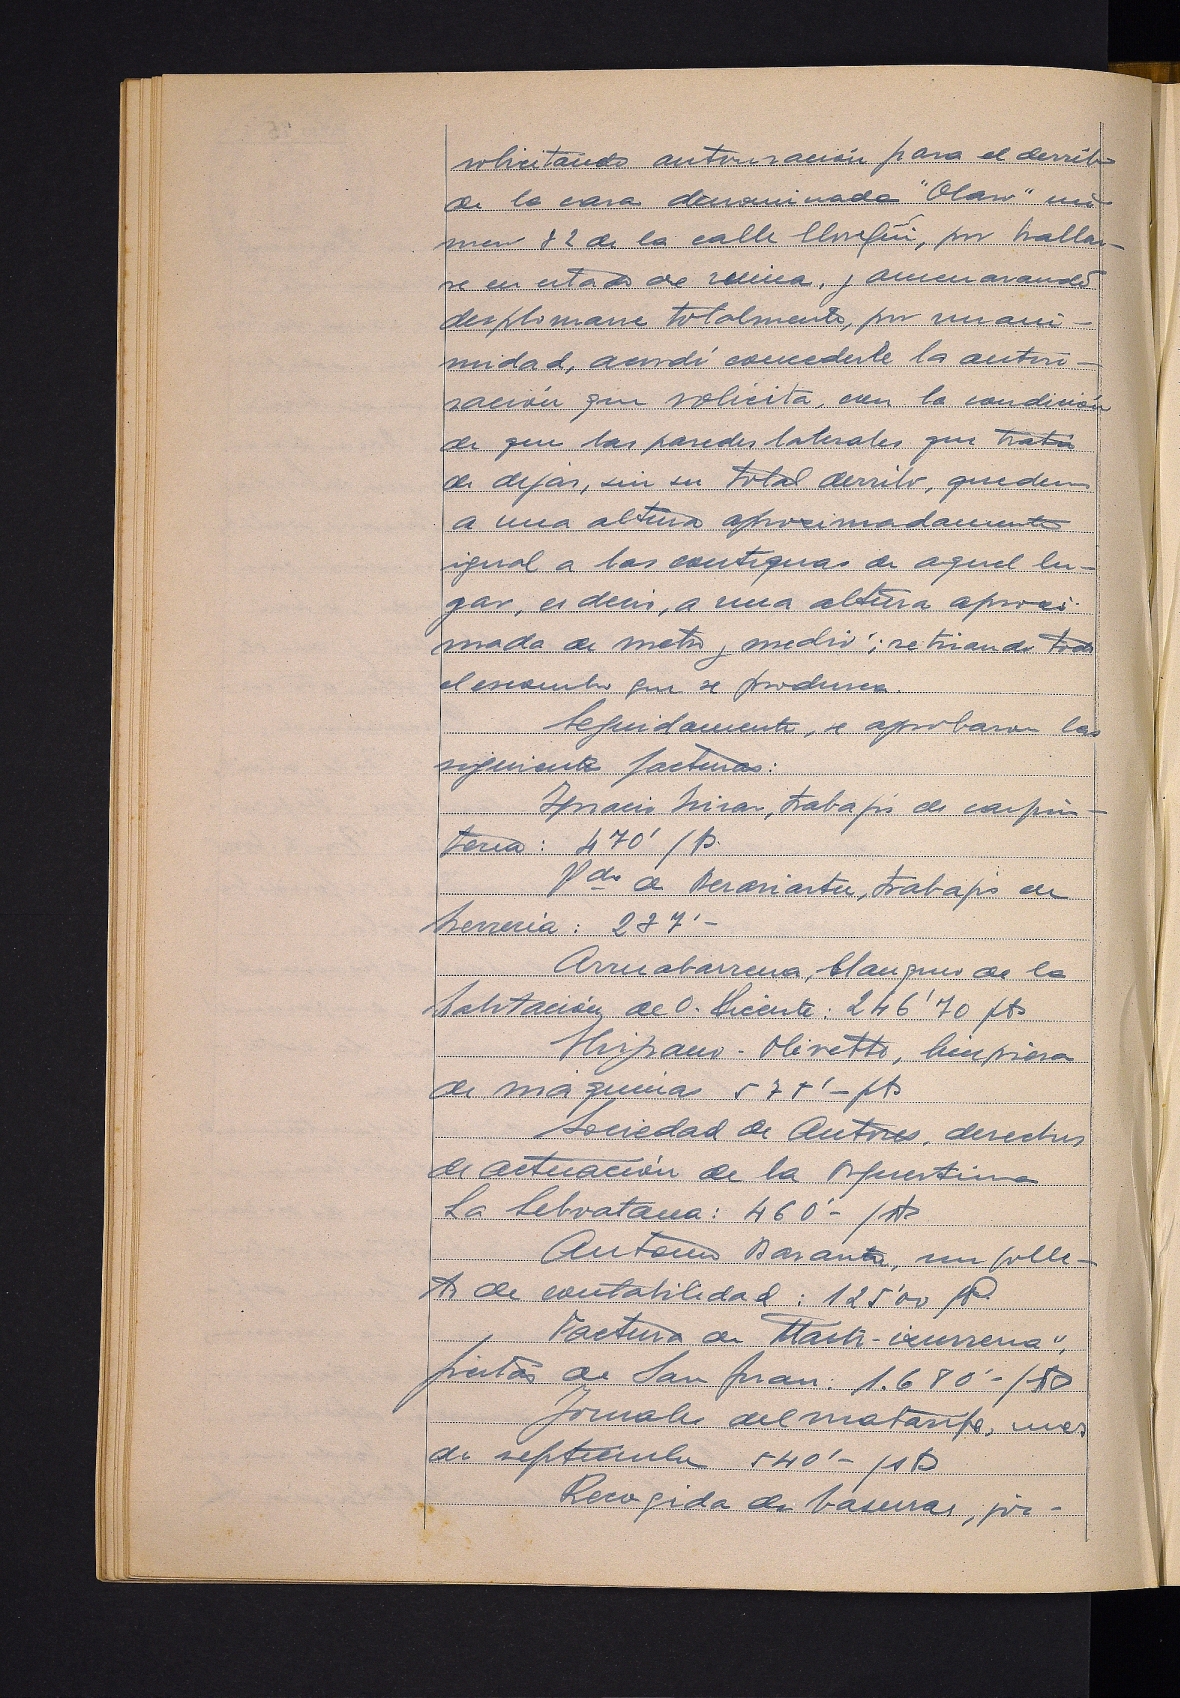 solicitando autorización para el derribo
de la casa denominada "Olaso" nú
mero 82 de la calle Eloregui, por hallar-
se en estado de ruina, y amenazando
desplomarse totalmente, por unani-
midad, acordó concederle la autori-
zación que solicita, con la condición
de que las paredes laterales que trata
de dejar, sin su total derribo, queden
a una altura aproximadamente
igual a las contiguas de aquel lu-
gar, es decir, a una altura aproxi-
mada de metro y medio; retirando todo
el escombro que se produzca.
Seguidamente, se aprobaron las
siguientes facturas:
Ignacio trabajos de carpin-
teria: 470' pts.
Vda de Berasiartu, trabajos de
herreria: 287'-
Arruabarrena, blanqueo de la
habitación de D. Vicente: 246'70 pts
Hispano-Olivetti, limpieza
de máquinas 575'- pts
Sociedad de Autores, derechos
de actuación de la Orquestina
La Sebratana: 460'- pts
Antonio Basante, un folle-
to de contabilidad: 125'00 pts.
Factura de
fiestas de San Juan: 1.680'- pts
Jornales del matarife, mes
de septiembre 540'- pts
Recogida de basuras, jor-